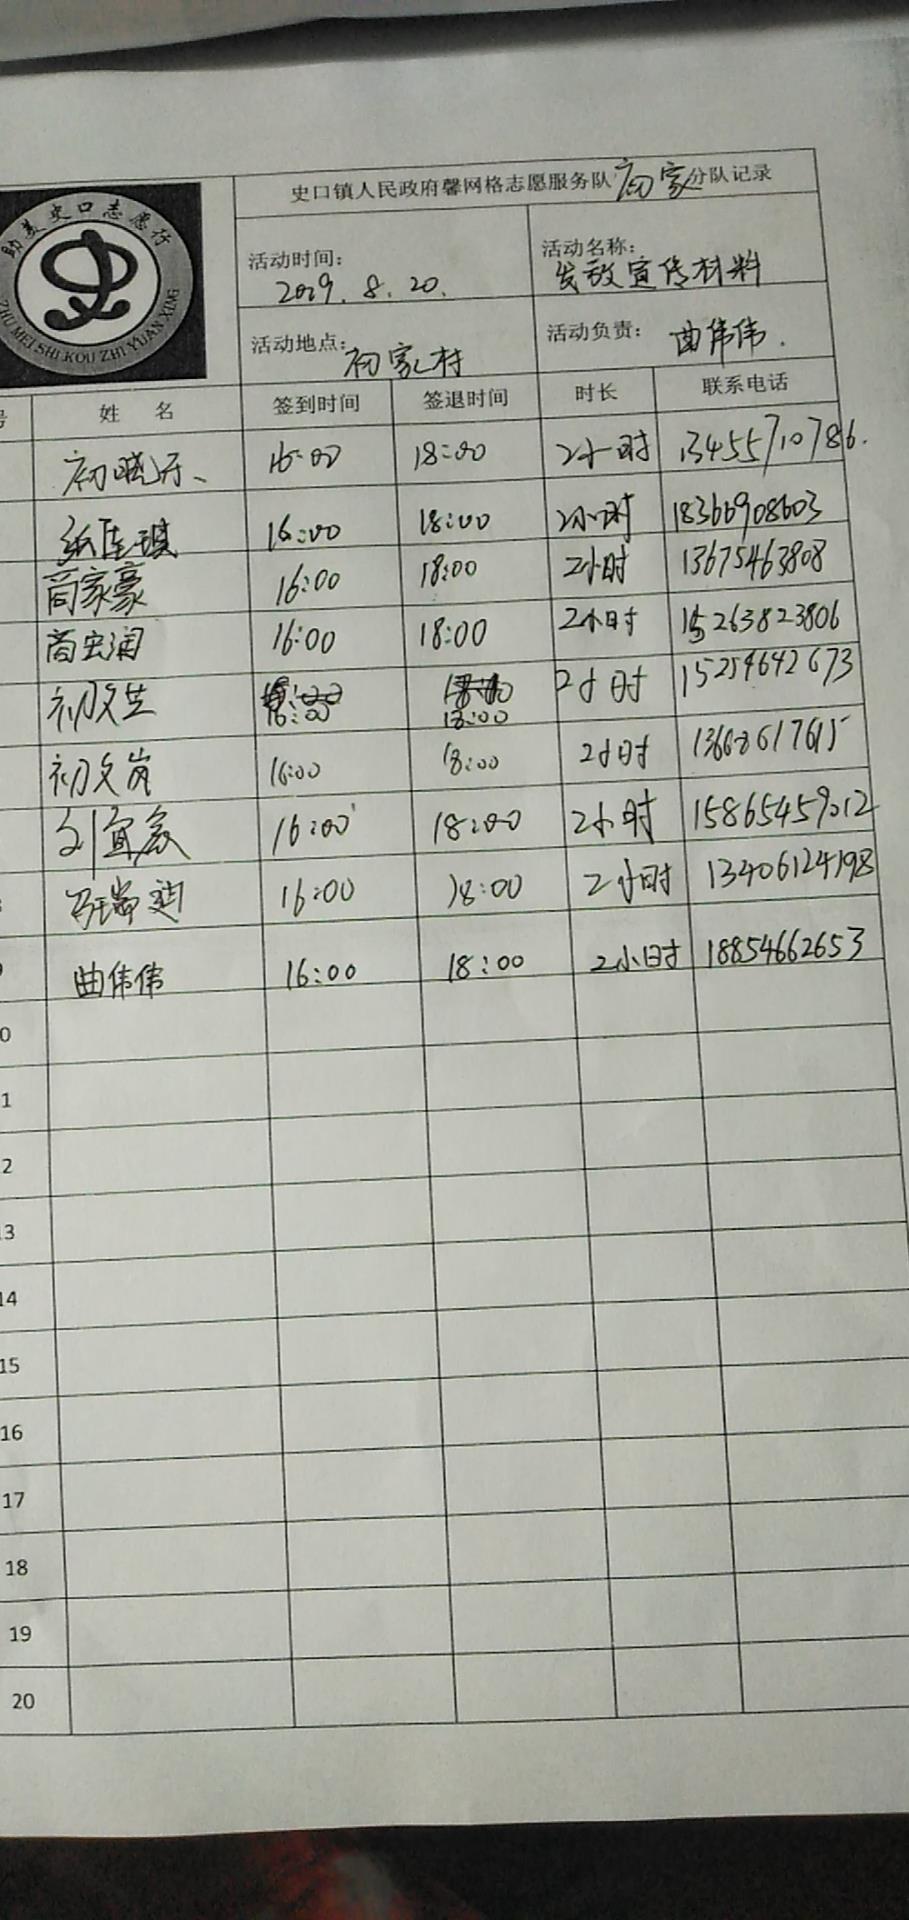 史口镇人民政府馨网格志愿服务队初家分队记录
助美史口志愿行
ZHU MEI SHI KOU ZHI YUAN XING
活动时间: 2019.8.20.
活动名称: 发放宣传材料
活动地点: 初家村
活动负责: 曲伟伟.
号 姓 名 签到时间 签退时间 时长 联系电话
初晓 16:00 18:00 2小时 13455710786.
琪 16:00 18:00 2小时 18366908603
商家豪 16:00 18:00 2小时 13675463808
商宏润 16:00 18:00 2小时 15263823806
初文生 16:00 18:00 2小时 15254642673
初文岗 16:00 18:00 2小时 13608617615
刘宜家 16:00 18:00 2小时 15865459012
瑞迪 16:00 18:00 2小时 13406124198
9 曲伟伟 16:00 18:00 2小时 18854662653
0
1
2
13
14
15
16
17
18
19
20